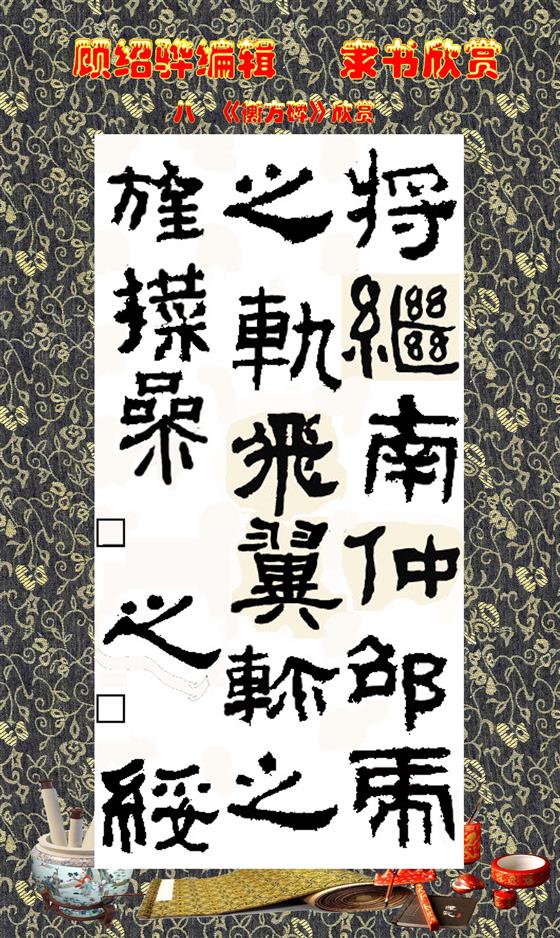 顾绍骅编辑 隶书欣赏
八 《衡方碑》欣赏
將繼南仲邵虎
之軌飛翼軫之
旌操參□之□綏